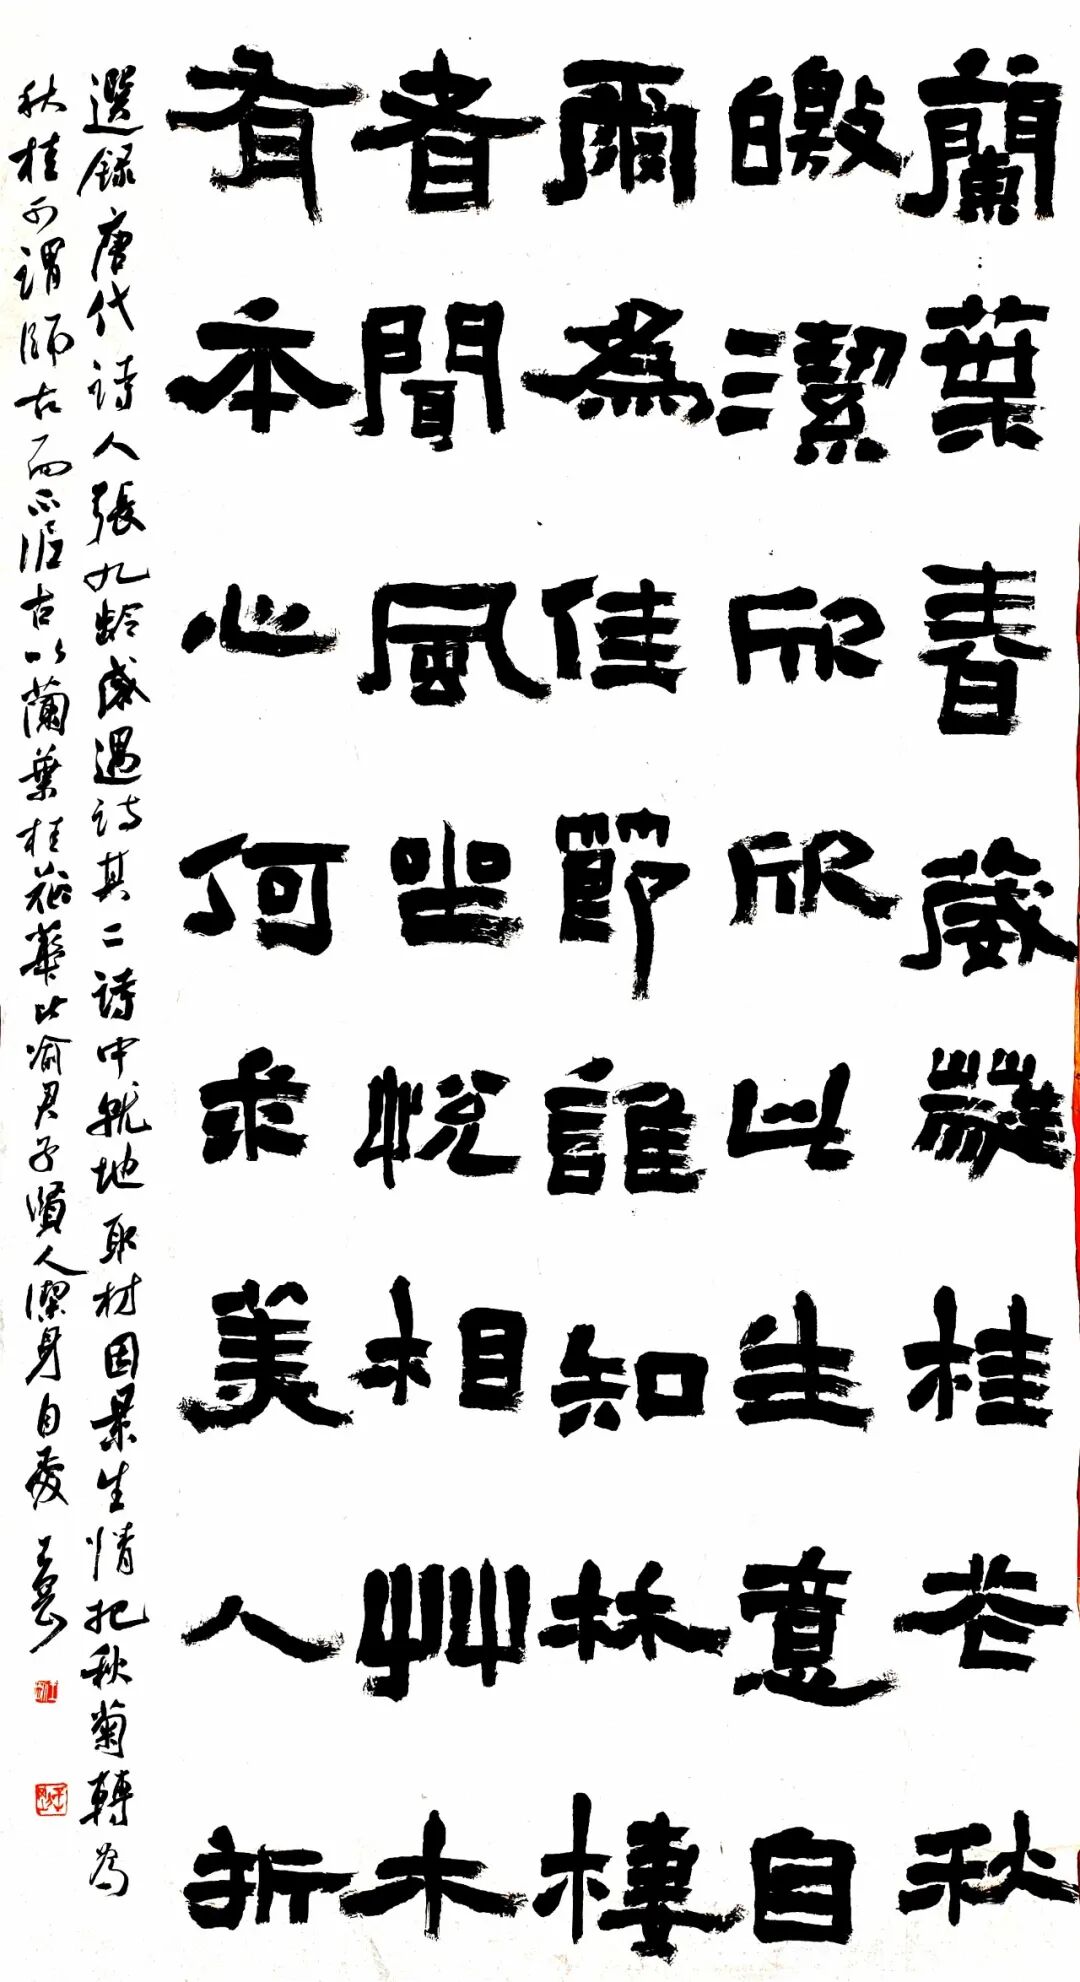 蘭葉春葳蕤桂花秋
皦潔欣欣此生意自
爾為佳節誰知林棲
者聞風坐悅相艸木
有本心何求美人折
選録唐代詩人張九齡感遇詩其二詩中就地取材因景生情把秋菊轉為
秋桂可謂師古而不泥古以蘭葉桂華比喻君子賢人潔身自愛